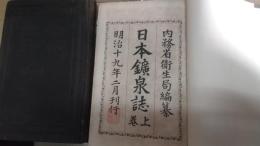 内務省衛生局編纂
日本鑛泉誌 上卷
明治十九年二月刊行